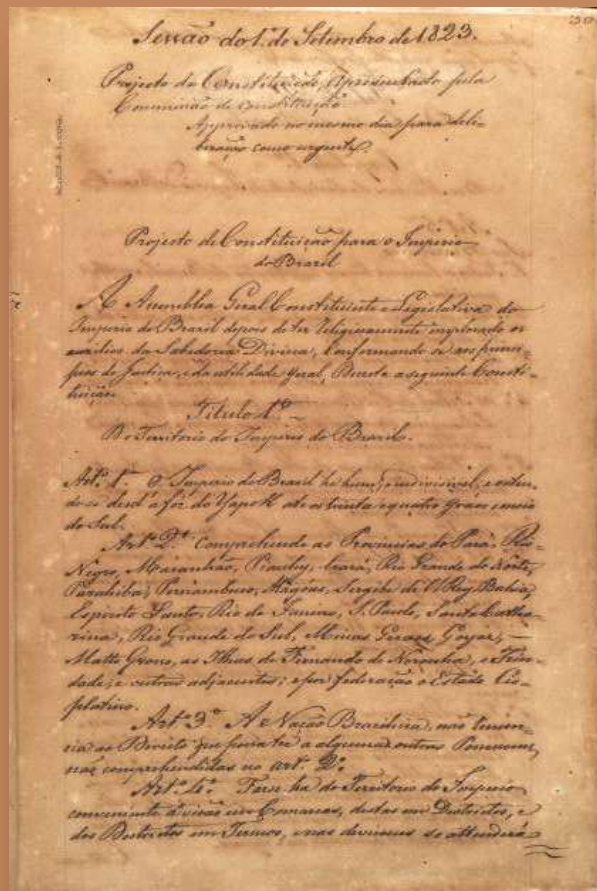 Sessão do 1º de Setembro de 1823.
Projecto de Constituição, apresentado pela
Commissão de Constituição.
Approvado no mesmo dia para deli-
beração como urgente.
Projecto de Constituição para o Imperio
do Brazil
A Assemblea Geral Constituinte e Legislativa do
Imperio do Brazil depois de ter religiosamente implorado os
auxilios da Sabedoria Divina, Conformando se aos princi-
pios de Justiça, e da utilidade geral, Decreta a seguinte Consti-
tuição
Titulo 1º
Do Territorio do Imperio do Brazil.
Artº 1º O Imperio do Brazil he hum, e indivisivel, e esten-
de-se desd'a fóz do Yapok até os trinta e quatro graos e meio
do Sul.
Artº 2º Comprehende as Provincias do Pará, Rio
Negro, Maranhão, Piauhy, Ceará, Rio Grande do Norte,
Parahiba, Pernambuco, Alagôas, Sergipe d'El Rey, Bahia,
Espirito Santo, Rio de Janeiro, S. Paulo, Santa Catha-
rina, Rio Grande do Sul, Minas Geraes, Goyaz, —
Matto Grosso, as Ilhas de Fernando de Noronha, e Trin-
dade, e outras adjacentes; e por federação o Estado Cis-
platino.
Artº 3º A Nação Brazileira, não renun-
cia ao Direito que possa ter a algumas outras Possessões,
não comprehendidas no artº 2º
Artº 4º Far-se ha do Territorio do Imperio
conveniente divisão em Comarcas, destas em Districtos, e
dos Districtos em Termos, e nas divisoens se attenderá